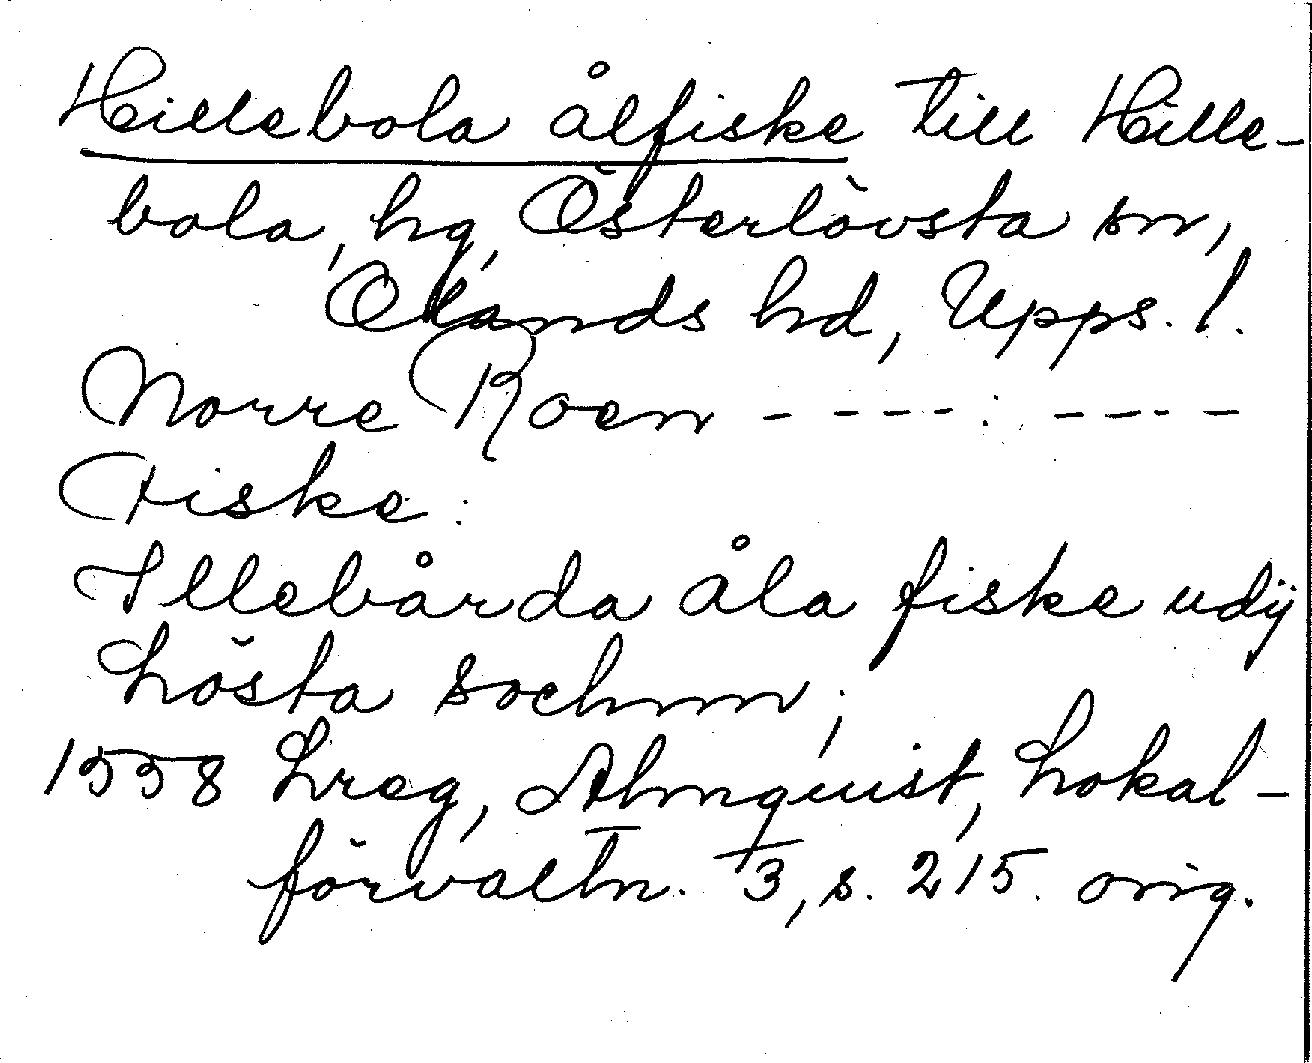 Hillebola ålfiske till Hille-
bola, hg, Österlövsta sn,
Olands hd, Upps. l.
Norre Roen - - - - : - - - -
Fiske:
Illebårda åla fiske udij
Lösta sochnn;
1558 Lreg, Almquist, Lokal-
förvaltn. 3, s. 215. orig.